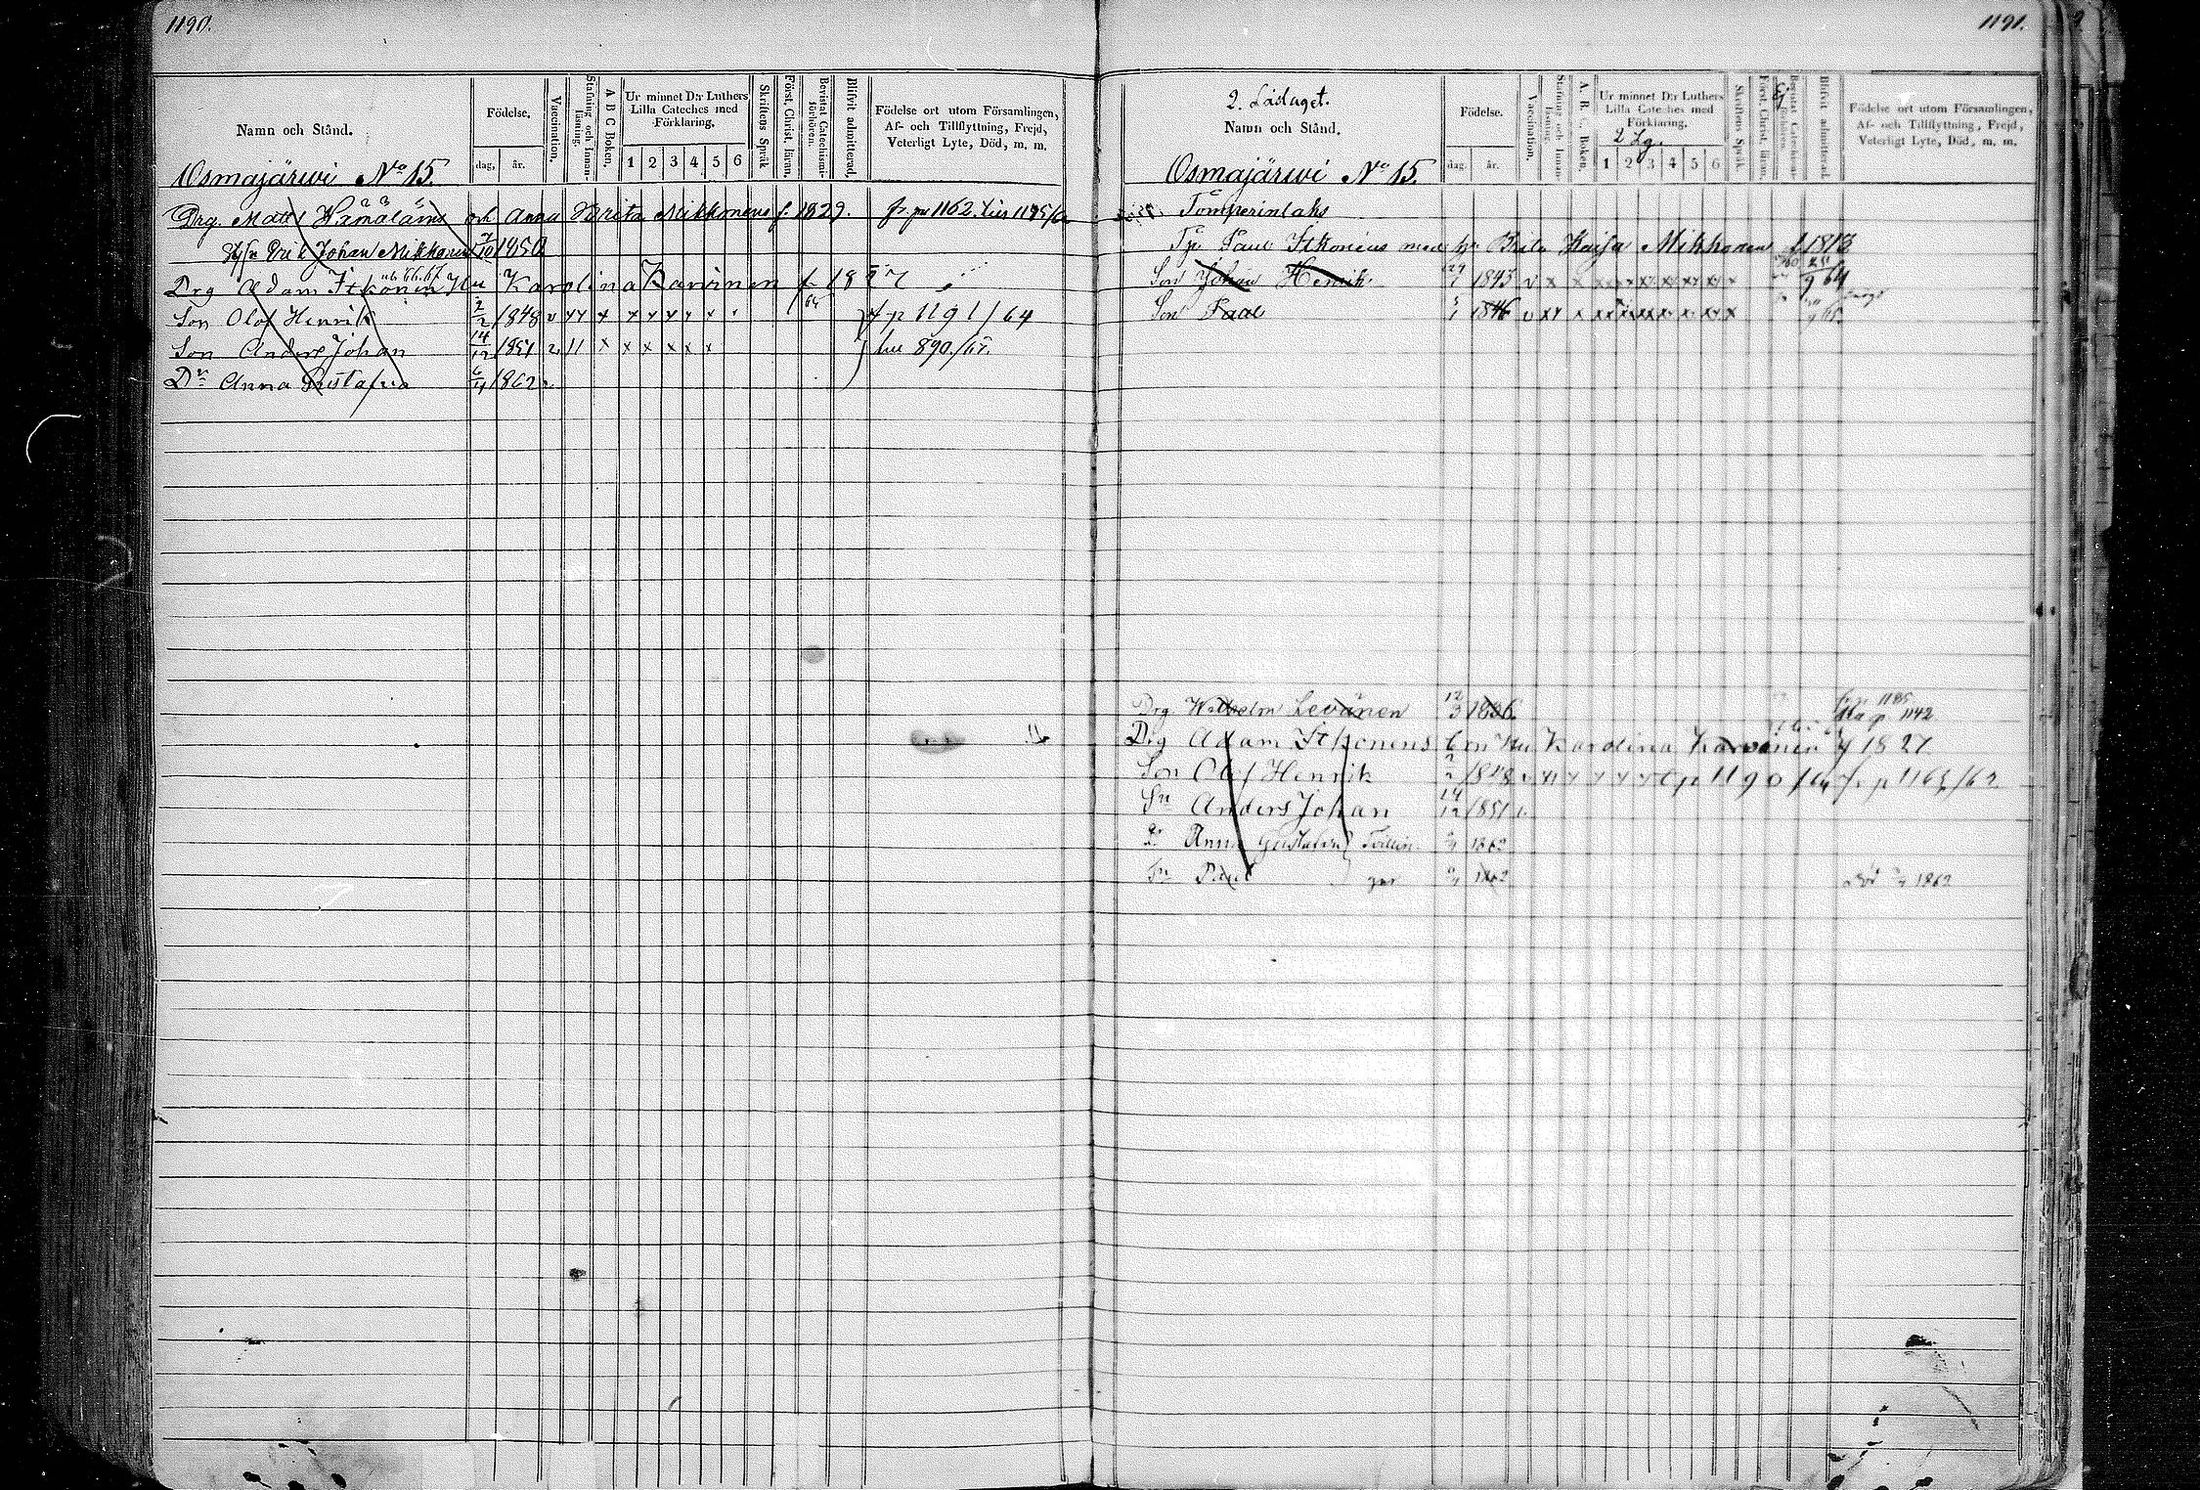 1190.
Namn och Stånd.
Födelse.
dag, år.
Vaccination.
Stafning och Innanläsning.
A B C Boken.
Ur minnet D:r Luthers Lilla Cateches med Förklaring.
1 2 3 4 5 6
Skriftens Språk
Först. Christ. läran.
Bevistat Catechismiförhören.
Blifvit admitterad.
Födelse ort utom Församlingen,
Af- och Tillflyttning, Frejd,
Veterligt Lyte, Död, m. m.
Osmajärwi No 15.
Drg. Matts Hämäläins och Anna Mikkonens f. 1829. fr. p. 1162.
Johan Mikkonen 1850
Drg Adam Itkonen Hu Karolina Karvinen f 1827
Son Olof Henrik 2/2 1848 v x x x x x x x f p 1191/64
Son Anders Johan 14/12 1851 v 11 x x x x x x 890/67.
Dr Anna Gustafva 6/4 1862 v
1191.
2. Läslaget.
Namn och Stånd.
Födelse.
dag. år.
Vaccination.
Stafning och Innanläsning.
A. B. C. Boken.
Ur minnet D:r Luthers Lilla Cateches med Förklaring.
2 Lg.
1 2 3 4 5 6
Skriftens Språk.
Först. Christ. läran.
Blifvit admitterad.
Födelse ort utom Församlingen,
Af- och Tillflyttning, Frejd,
Veterligt Lyte, Död, m. m.
Osmajärwi No 15.
Tomperinlaks
Paul Itkonens med Brita Kaisa Mikkonen f. 1813
Son Johan Henrik 1843 v x x 64
Son Paul 1846 v x x 65.
Drg Wilhelm Levänen 12/3 1836. p. 1142
Drg Adam Itkonens Hu Karolina Karvinen f 1827
Son Olof Henrik 2/2 1848 v x x x x x p 1190/64 fr p 1163/62
Sn Anders Johan 14/12 1851 v.
Dr Anna Gustafva 1862
Sn Paul 1862 Död 1862